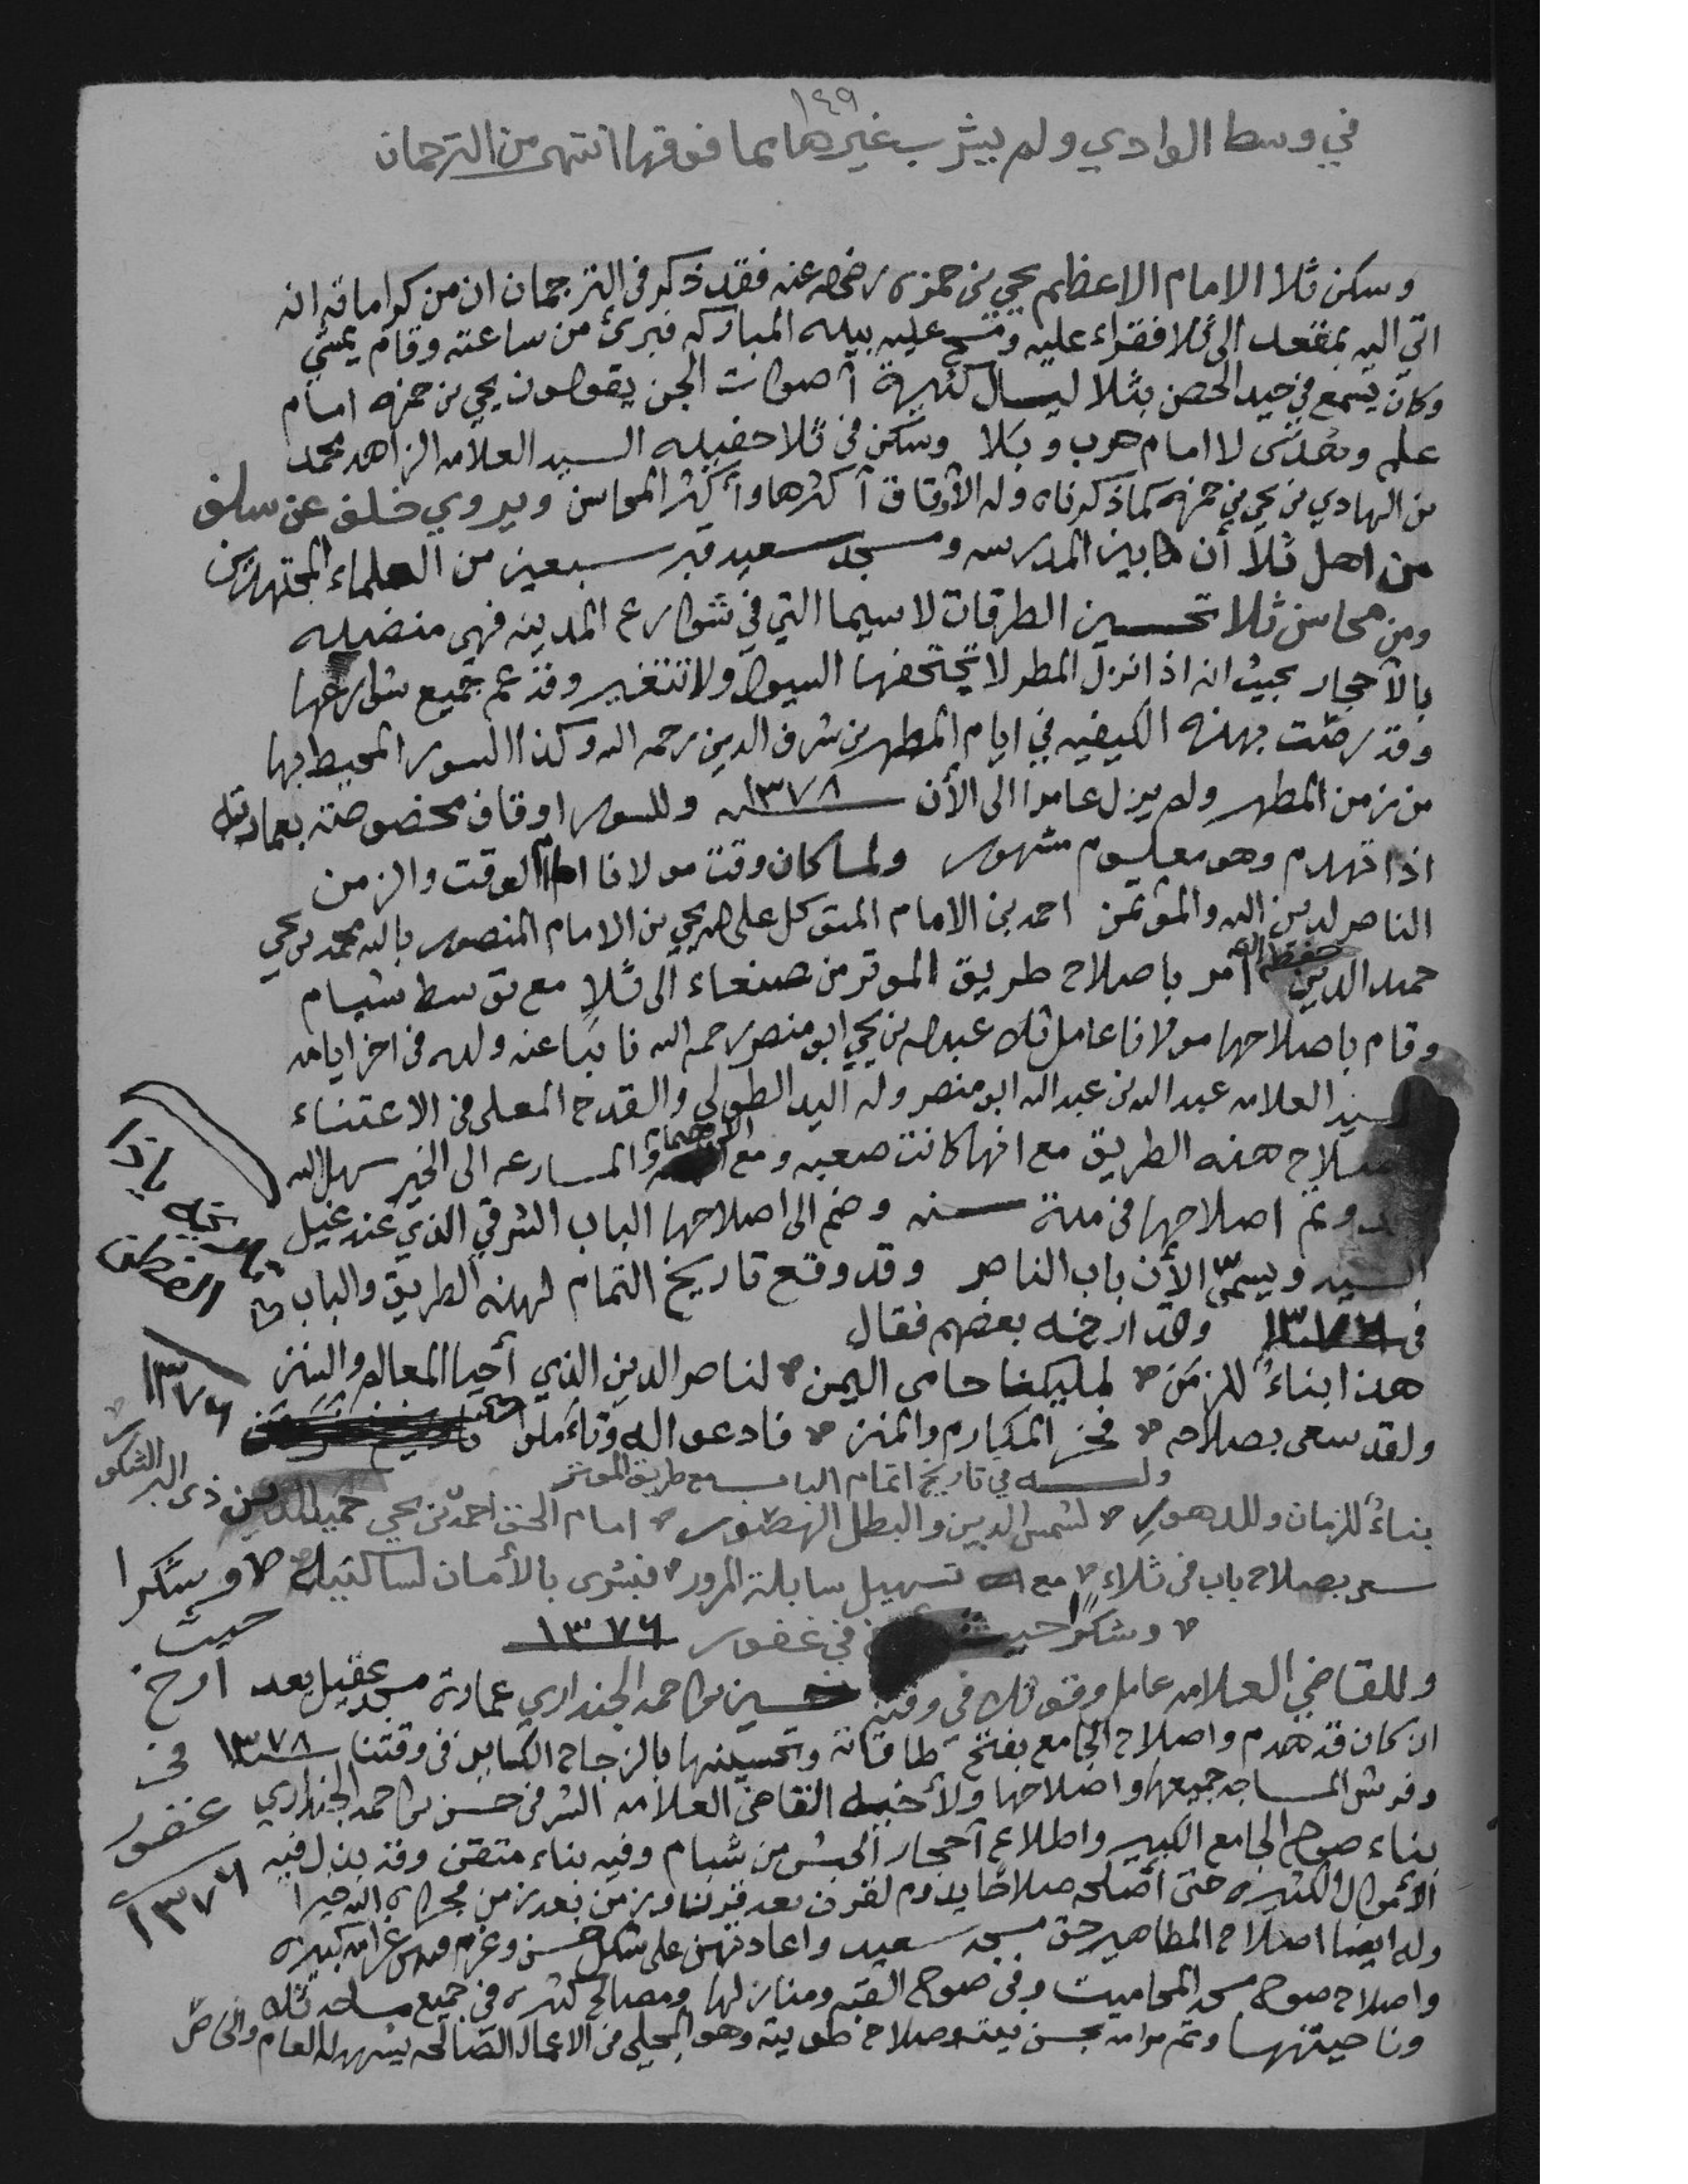 ١٤٩
في وسط الوادي ولم يشرب غيرها مما فوقها انتهى من الترجمان
وسكن ثلا الامام الاعظم يحيى بن حمزه رضي الله عنه فقد ذكر في الترجمان ان من كراماته انه
اتي اليه بمقعد الى ثلا فقراء عليه ومسح عليه بيده المباركه فبرئ من ساعته وقام يمشي
وكان يسمع في حيد الحصن بثلا ليال كثيرة آصوات الجن يقولون يحيى بن حمزه امام
علم وهدى لا امام حرب وبلا وسكن في ثلا حفيده السيد العلامه الزاهد محمد
بن الهادي بن يحيى بن حمزه كما ذكرناه وله الأوقاف آكثرها وأكثر المحاسن ويروي خلف عن سلف
من اهل ثلا أن مابين المدرسه ومسجد سعيد قبر سبعين من العلماء المجتهدين
ومن محاسن ثلا تحسين الطرقات لاسيما التي في شوارع المدينه فهي منضده
بالأحجار بحيث انه اذا نزل المطر لا تجتحفها السيول ولا تتغير وقد عم جميع شوارعها
وقد رصت بهذه الكيفيه في ايام المطهر بن شرف الدين رحمه الله وكذا السور المحيط بها
من زمن المطهر ولم يزل عامرا الى الأن سنه ١٣٧٨ وللسور اوقاف مخصوصة بعمارته
اذا تهدم وهو معلوم مشهور ولما كان وقت مولانا امام الوقت والزمن
الناصر لدين الله والمؤتمن احمد بن الامام المتوكل على الله يحيى بن الامام المنصور بالله محمد بن يحيى
حميد الدين حفظه الله أمر باصلاح طريق الموتر من صنعاء الى ثلا مع توسط شبام
وقام باصلاحها مولانا عامل ثلا عبدالله بن يحيى ابو منصر رحمه الله نائبا عنه ولده في اخر ايامه
السيد العلامه عبد الله بن عبد الله ابو منصر وله اليد الطولى والقدح المعلى في الاعتناء
باصلاح هذه الطريق مع انها كانت صعبه ومع والمسارعه الى الخير سهل الله
وتم اصلاحها في مدة سنه وضم الى اصلاحها الباب الشرقي الذي عند غيل
السيد ويسمى الأن باب الناصر وقد وقع تاريخ التمام لهذه الطريق والباب
في وقد ارخه بعضهم فقال
هذا بناءُ للزمن لمليكنا حامي اليمن لناصر الدين الذي أحيا المعالم والسنن
ولقد سعى بصلاحه فخر المكارم والمنن فادعوا له وتاملوا
١٣٧٦
وله في تاريخ اتمام الباب مع طريق الموتر
بناءُ للزمان وللدهور لشمس الدين والبطل الهصور امام الحق احمد بن يحيى حميد الدين ذي البر الشكور
سعى بصلاح باب في ثلاء مع تسهيل سابلة المرور فبشرى بالأمان لسالكيه وشكرا
حيث
وشكرا حيث في غفور ١٣٧٦
ارخ
في
غفور
١٣٧٦
وللقاضي العلامه عامل وقف ثلا في وقته حسين بن احمد الجنداري عمارة مسجد عقيل بعد
ان كان قد هدم واصلاح الجامع بفتح طاقاته وتحسينها بالزجاج الكبابير في وقتنا سنه ١٣٧٨
وفرش المساجد جميعها واصلاحها ولأخيه القاضي العلامه الشرفي حسن بن احمد الجنداري
بناء صوح الجامع الكبير واطلاع آحجار الحبش من شبام وفيه بناء متقن وقد بذل فيه
الأموال الكثيره حتى أصلحه صلاحا يدوم لقرن بعد قرننا وزمن بعد زمن فجزاه الله خيرا
وله ايضا اصلاح المطاهير حق مسجد سعيد واعادتهن على شكل حسن وغرم غرامه كبيره
واصلاح صوح مسجد المحاميت وفي صوح القبه ومنازلها ومصالح كثيره في جميع مساجد ثلا
وناحيتها وتم مرامه بحسن نيته وصلاح طويته وهو المجلي في الاعمال الصالحه يشهد له العام والخاص